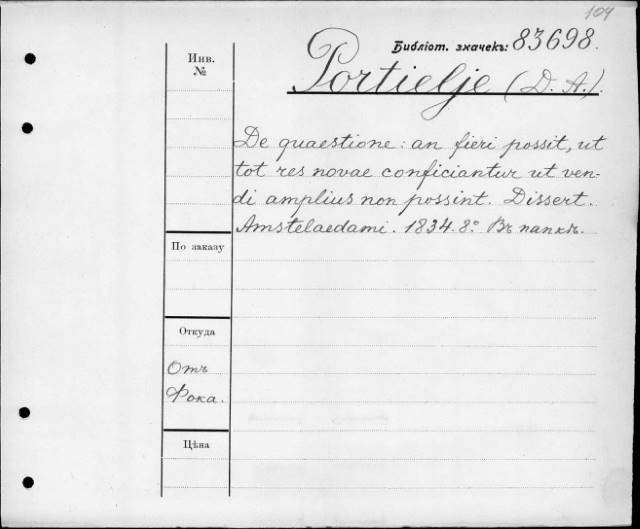 104
Библіот. значекъ: 83698.
Инв.
№
Portielje (D. A.).
De quaestione: an fieri possit, ut
tot res novae conficiantur ut ven-
di amplius non possint. Dissert.
Amstelaedami. 1834. 8º. Въ папкѣ.
По заказу
Откуда
Отъ
Фока.
Цѣна